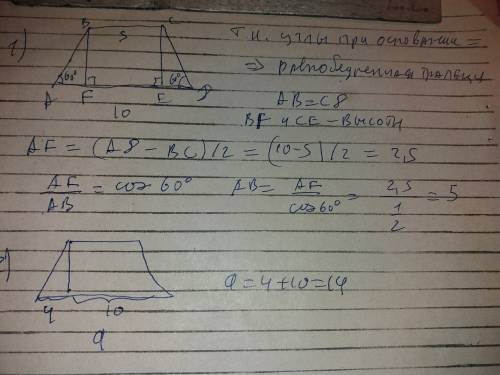 1)
B 5 C
60° 60°
A F E D
10
Т.к. углы при основании =
=> равнобедренная трапеция
AB=CD
BF и CE - высоты
AF = (AD - BC)/2 = (10-5)/2 = 2,5
AF/AB = cos 60° AB = AF/cos60° = 2,5/(1/2) = 5
4 10
a
a = 4+10=14